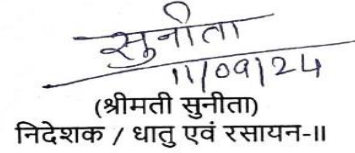 सुनीता
11/09/24
(श्रीमती सुनीता)
निदेशक / धातु एवं रसायन-II